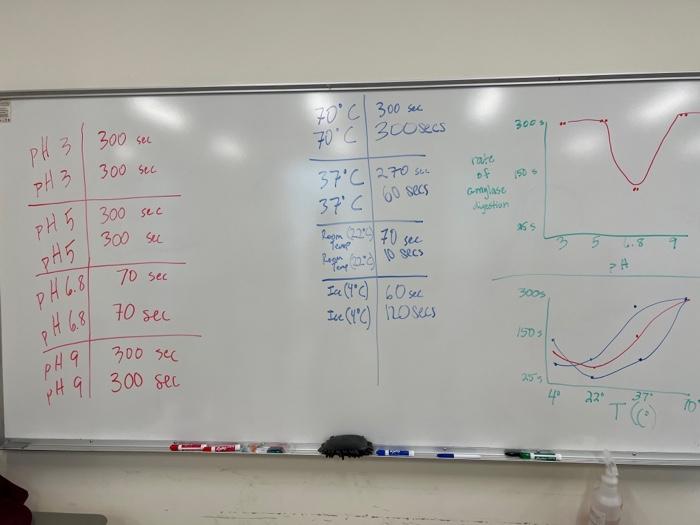 pH 3 300 sec
pH 3 300 sec
pH 5 300 sec
pH5 300 sec
pH 6.8 70 sec
pH 6.8 70 sec
pH 9 300 sec
pH 9 300 sec
70°C 300 sec
70°C 300secs
37°C 270 sec
37°C 60 secs
Room (22°C) 70 sec
Temp
Room (22°C) 10 secs
Temp
Ice (4°C) 60 sec
Ice (4°C) 120secs
300s
rate
of
amylase
digestion
150s
25s
3 5 6.8 9
pH
300s
150s
25s
4° 22° 37° 70°
T (C°)